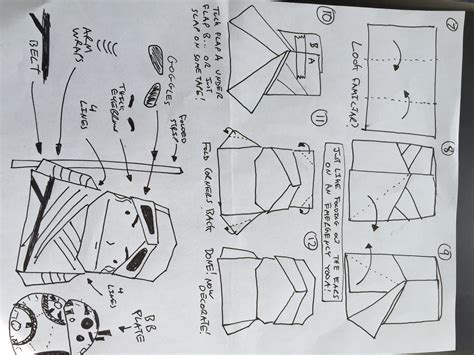 7
8
9
LOOK FAMILIAR?
JUST LIKE FOLDING ON THE EARS
ON AN EMERGENCY YODA!
10
11
12
B
A
TUCK FLAP A UNDER
FLAP B... OR JUST
SLAP ON SOME TAPE!
FOLD CORNERS BACK
DONE! NOW
DECORATE!
GOGGLES
FOLDED
STRIP
THICK
EYEBROW
4
LINES
ARM
WRAPS
BELT
4
LINES
BB
PLATE